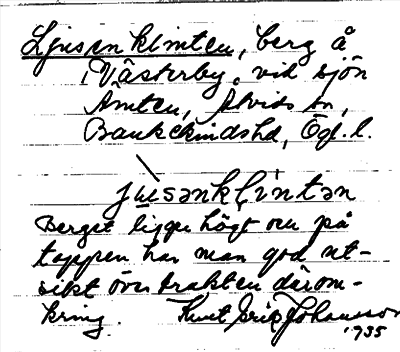 Ljusenklinten, berg å
Västerby, vid sjön
Åmten, Arvids sn,
Bankekinds hd, Ögl. l.
jusənklintən
Berget ligger högt och på
toppen har man god ut-
sikt över trakten därom-
kring. Knut Eric Johansson
1935